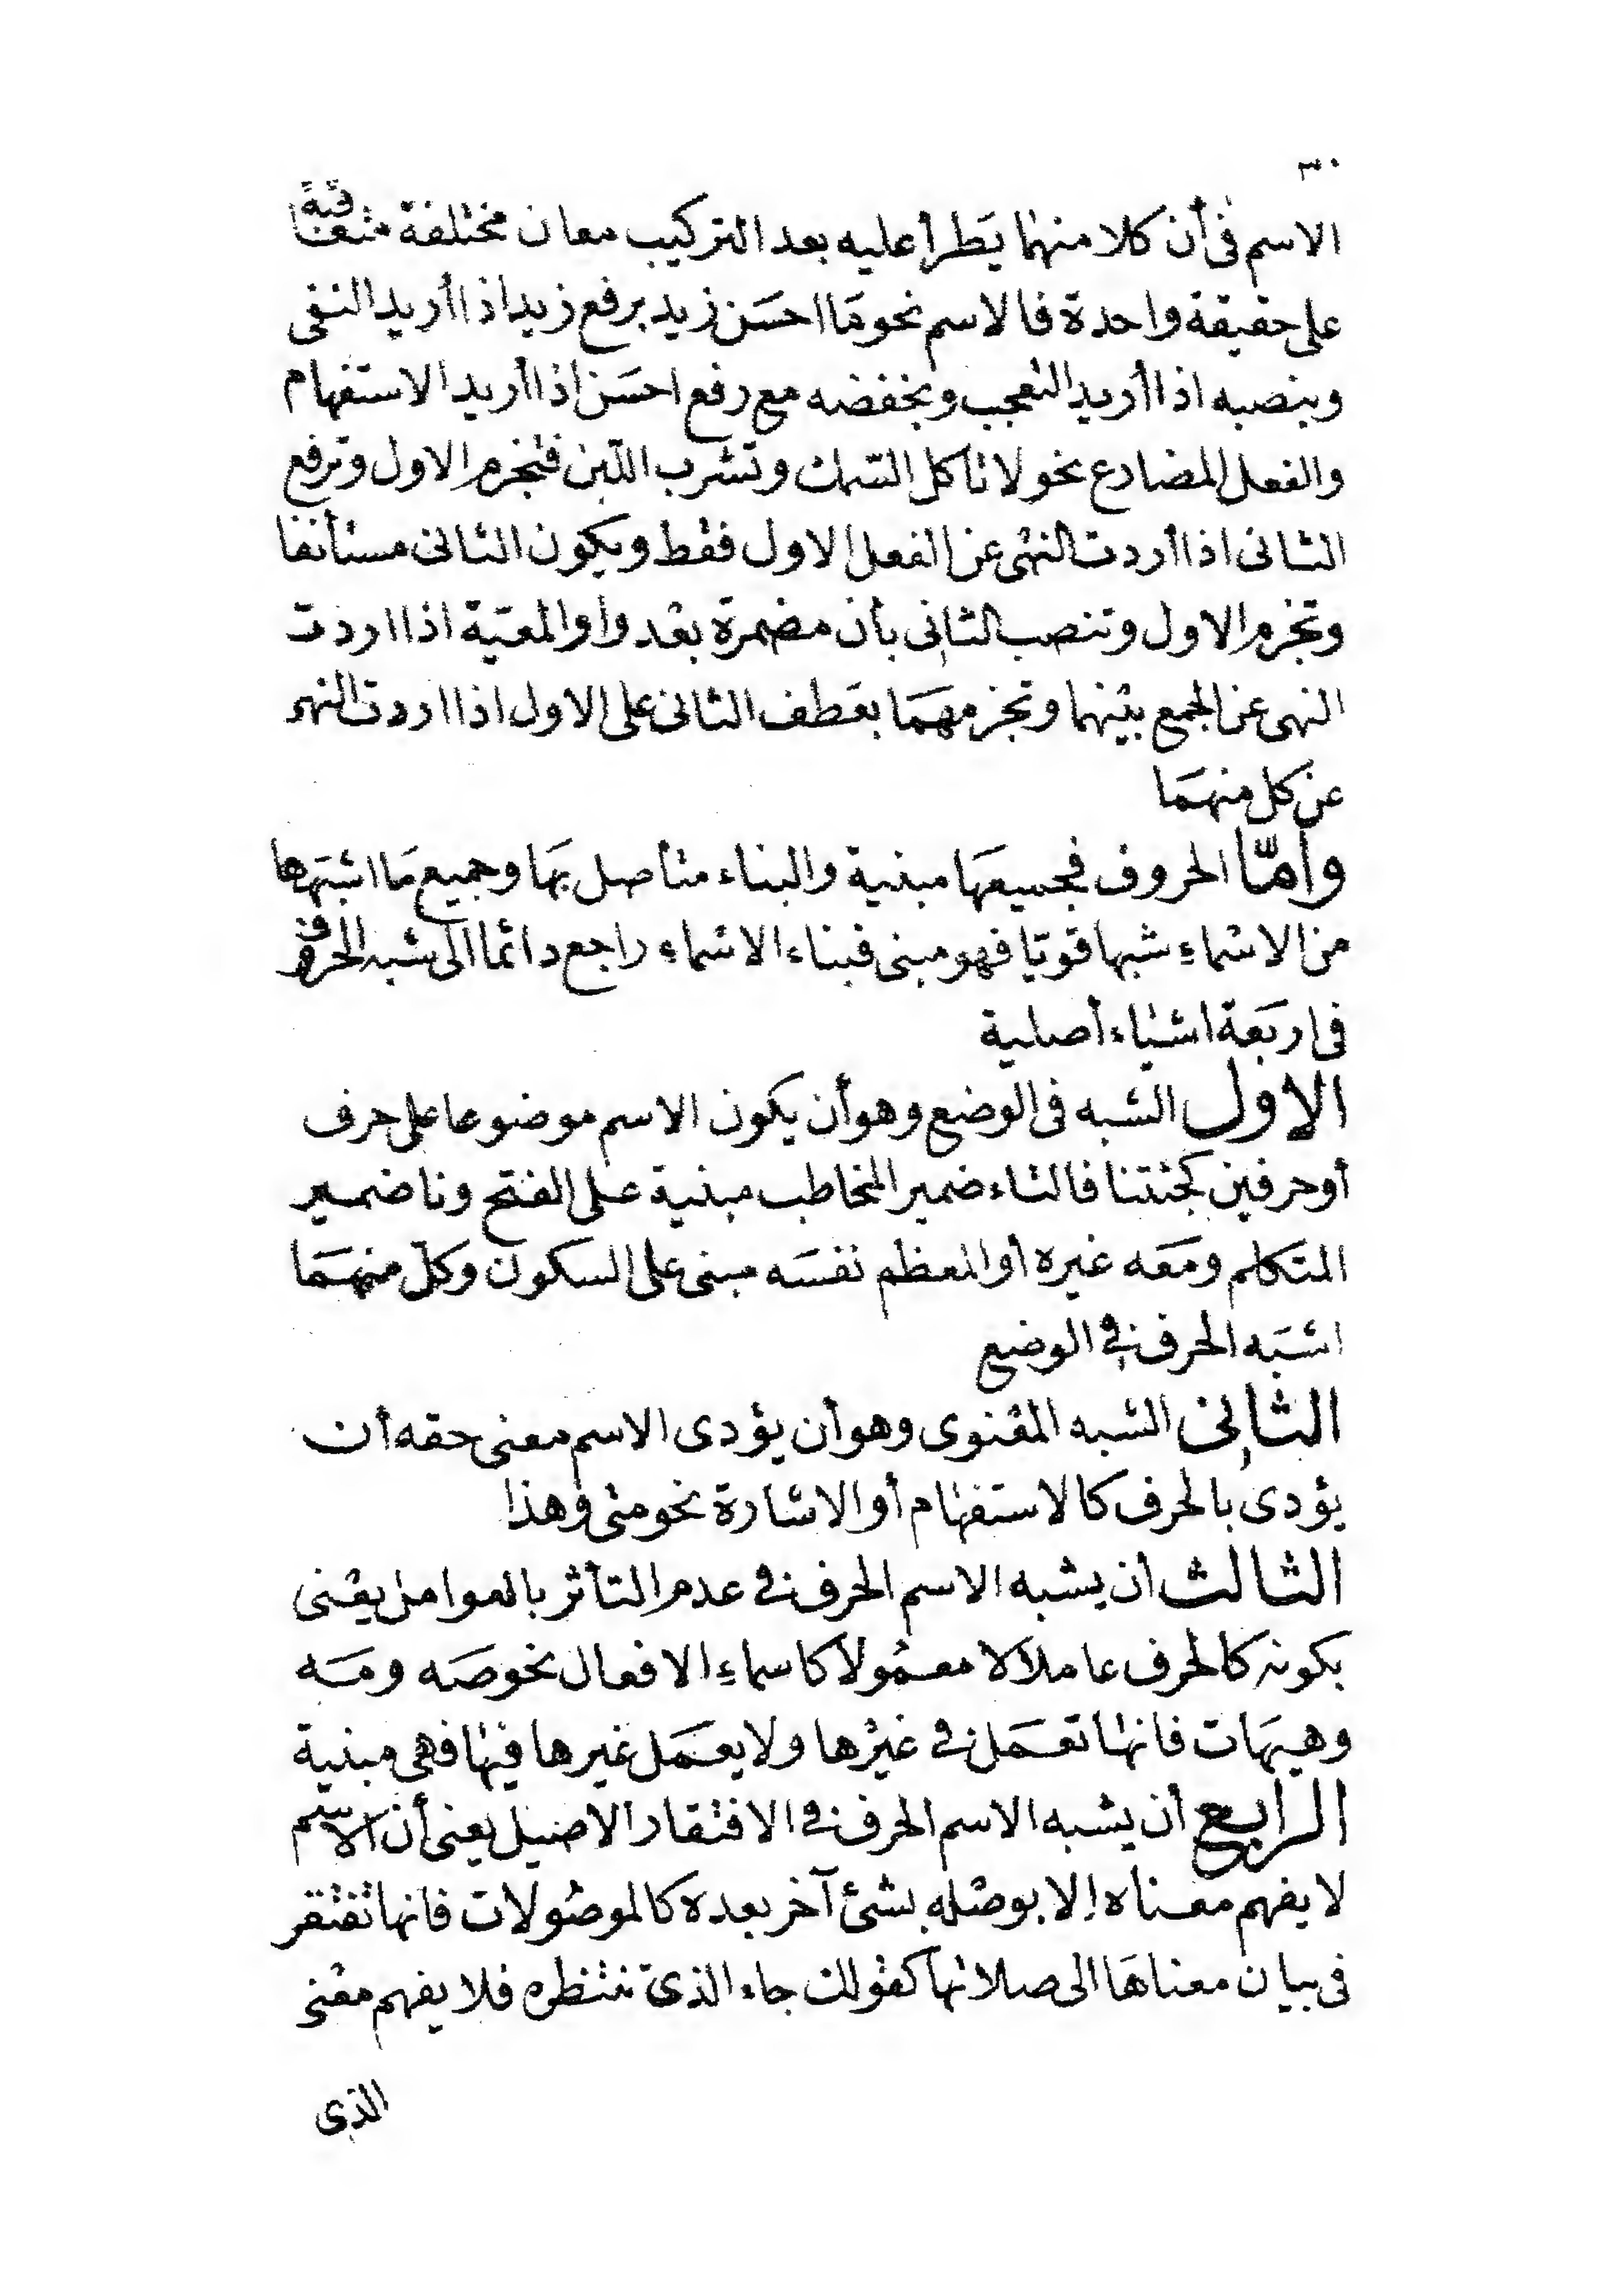 ٣٠
الاسم فى أن كلا منهما يَطرأ عليه بعد التركيب معان مختلفة متعاقبة
على حقيقة واحدة فالاسم نحو مَا احسَن زيد برفع زيد اذا أريد النفى
وبنصبه اذا أريد التعجب وبخفضه مع رفع احسَن اذا أريد الاستفهام
والفعل المضارع نحو لا تأكل السّمك وتشرب اللّبن فتجزم الاول وترفع
الثانى اذا أردت النهى عن الفعل الاول فقط ويكون الثانى مستأنفا
وتجزم الاول وتنصب الثانى بأن مضمرة بعْد واو المعيّة اذا اردت
النهى عن الجمع بينهما وتجزمهمَا بعَطف الثانى على الاول اذا اردت النهى
عن كل منهمَا
وأمّا الحروف فجميعهَا مبنية والبناء متأصل بهَا وجميع مَا اشبَهها
من الاسْماءِ شبها قويّا فهو مبنى فبناء الاسْماءِ راجع دائما الى شبه الحرف وهو
فى اربَعة اشياء أصلية
الاول الشبه فى الوضع وهو أن يكون الاسم موضوعا على حرف
أو حرفين كجئتنا فالتاء ضمير المخاطب مبنية على الفتح ونا ضمير
المتكلم ومَعَه غيره أو المعظم نفسَه مبنى على السكون وكلّ منهمَا
اشبَه الحرف فى الوضع
الثانى الشبه المعْنوى وهو أن يؤدى الاسم معنى حقه أن
يؤدى بالحرف كالاستفهام أو الاشارة نحو متى وهذا
الثالث أن يشبه الاسم الحرف فى عدم التأثر بالعوامل يعْنى
بكونه كالحرف عاملاً لا معمُولاً كاسماءِ الافعال نحو صَه ومَه
وهيهَات فانها تعمَل فى غيْرها ولا يعمَل غيرها فيها فهى مبنية
الرابع أن يشبه الاسم الحرف فى الافتقار الاصيل يعنى أن الاسم
لا يفهم معناه إلا بوصْله بشئ آخر بعده كالموصُولات فانها تفتقر
فى بيان معناهَا الى صلاتها كقولك جاء الذى ننتظره فلا يفهم معْنى
الذى